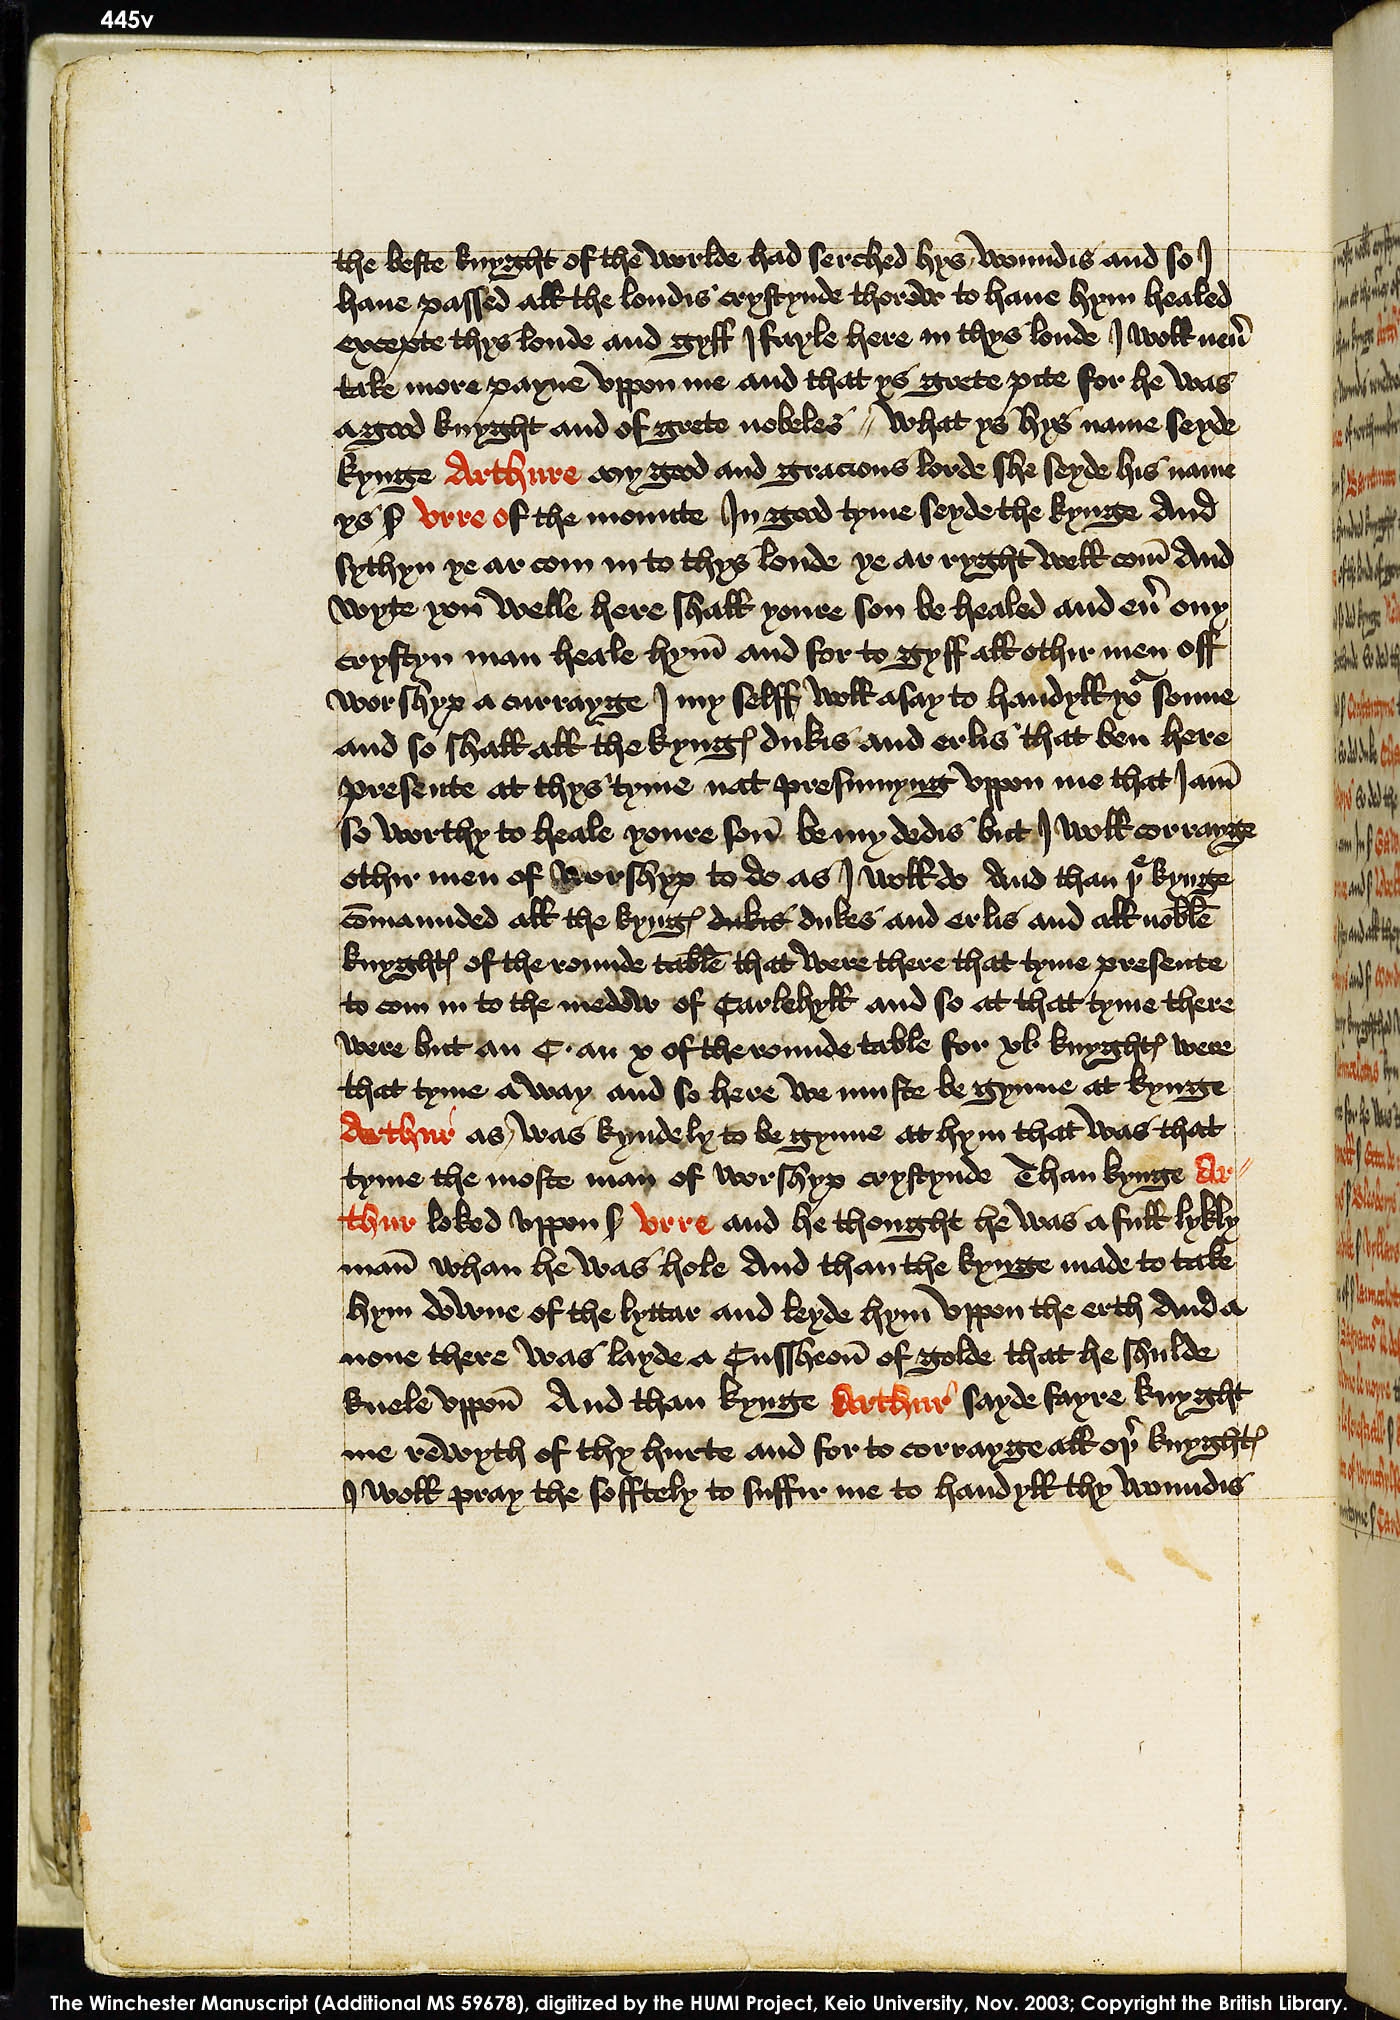 445v
the beste knyght of the worlde had serched hys woundis and so I
haue passed all the londis crystynde thorow to haue hym healed
excepte thys londe and gyff I fayle here in thys londe I woll neu̾
take more payne vppon me and that ys grete pite for he was
a good knyght and of grete nobeles // What ys hys name seyde
kynge Arthure my good and gracious lorde she seyde his name
ys ẜ Vrre of the mounte In good tyme seyde the kynge And
sythyn ye ar com in to thys londe ye ar ryght well com̄ And
wyte you welle here shall youre son be healed and eu̾ ony
crystyn man heale hym̄ and for to gyff all othir men off
worshyp a currayge I my selff woll asay to handyll yoͬ sonne
and so shall all the kyngꝭ dukis and erlis that ben here
presente at thys tyme nat presumyng vppon me that I am̄
so worthy to heale youre son̄ be my dedis but I woll corrayge
othir men of worshyp to do as I woll do And than þͤ kynge
cōmaunded all the kyngꝭ dukis dukes and erlis and all noble
knyghtꝭ of the rounde table that were there that tyme presente
to com in to the medow of Carlehyll and so at that tyme there
were but an C · an x of the rounde table for xl knyghtꝭ were
that tyme a way and so here we muste be gynne at kynge
Arthur as was kyndely to be gynne at hym that was that
tyme the moste man of worshyp crystynde Than kynge Ar//
thur loked vppon ẜ Vrre and he thought he was a full lykly
man̄ whan he was hole And than the kynge made to take
hym downe of the lyttar and leyde hym̄ vppon the erth And a
none there was layde a Cussheon̄ of golde that he shulde
knele vppon̄ And than kynge Arthur sayde fayre knyght
me rewyth of thy hurte and for to corrayge all oþ̾ knyghtꝭ
I woll pray the sofftely to suffir me to handyll thy woundis
The Winchester Manuscript (Additional MS 59678), digitized by the HUMI Project, Keio University, Nov. 2003; Copyright the British Library.